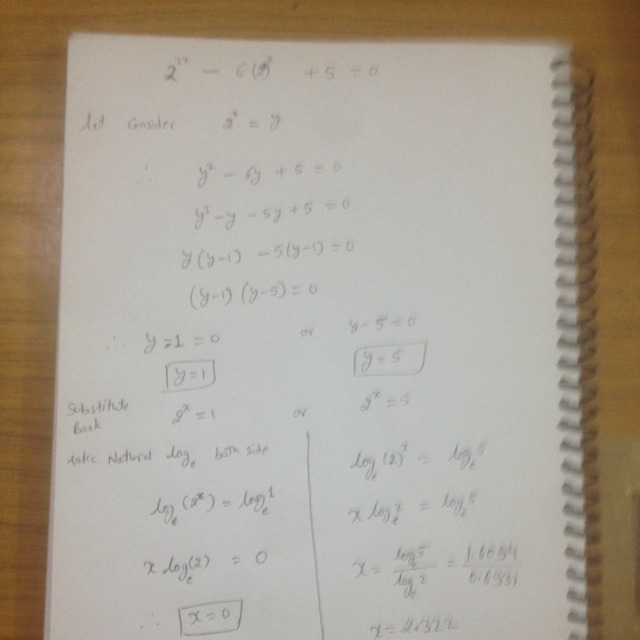 2^2x - 6(2)^x + 5 = 0
let consider 2^x = y
∴ y² - 6y + 5 = 0
y² - y - 5y + 5 = 0
y(y-1) - 5(y-1) = 0
(y-1) (y-5) = 0
∴ y=1 = 0 or y-5=0
y=1 y=5
Substitute back 2^x = 1 or 2^x = 5
take Natural logₑ both side
logₑ(2^x) = logₑ1
x logₑ(2) = 0
∴ x=0
logₑ(2)^x = logₑ5
x logₑ2 = logₑ5
x = logₑ5/logₑ2 = 1.6094/0.6931
x = 2.322